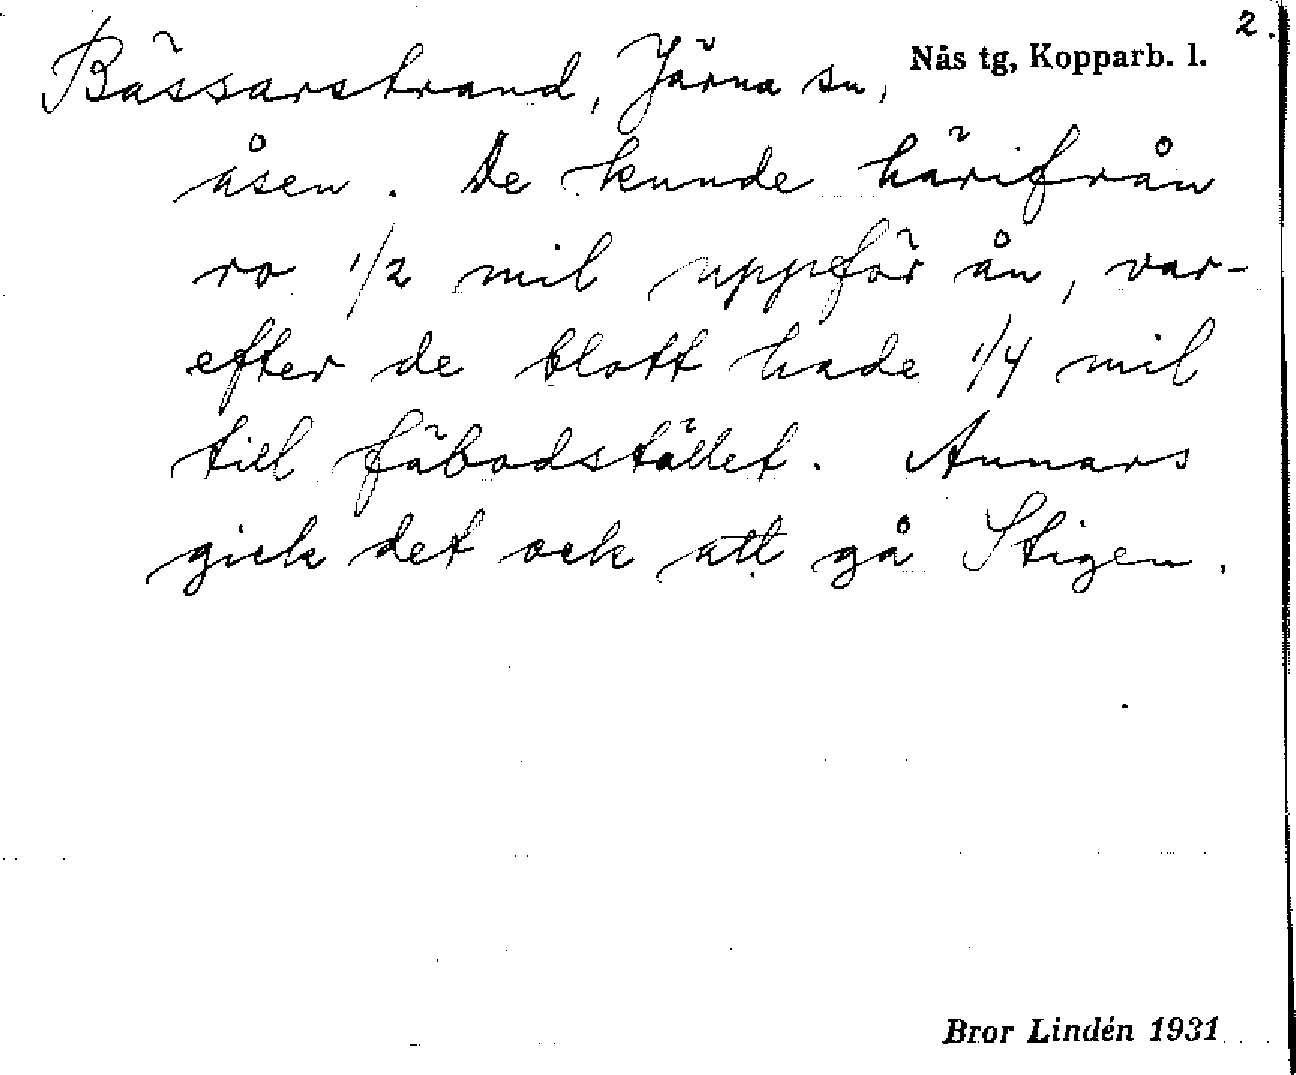 2.
Bässarstrand, Järna sn, Nås tg, Kopparb. l.
åsen. De kunde härifrån
ro 1/2 mil uppför ån, var-
efter de blott hade 1/4 mil
till fäbodstället. Annars
gick det ock att gå Stigen.
Bror Lindén 1931